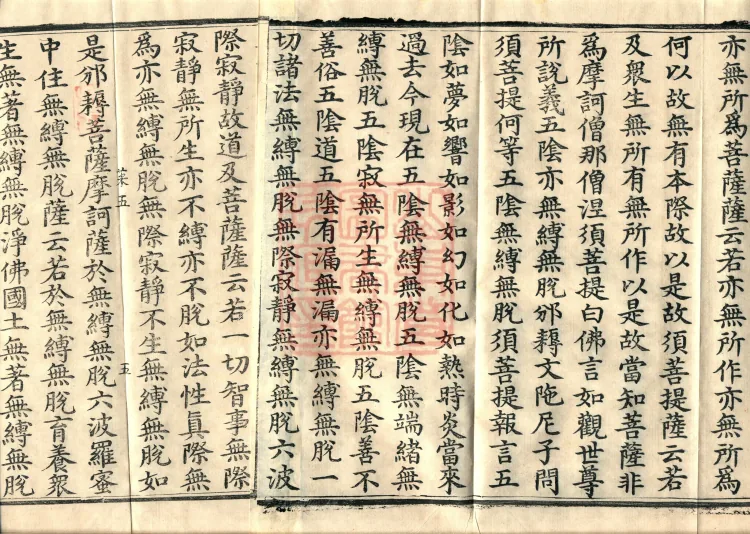 亦無所爲菩薩薩云若亦無所作亦無所爲
何以故無有本際故以是故須菩提薩云若
及衆生無所有無所作以是故當知菩薩非
爲摩訶僧那僧涅須菩提白佛言如觀世尊
所說義五陰亦無縛無脫邠耨文陁尼子問
須菩提何等五陰無縛無脫須菩提報言五
陰如夢如響如影如幻如化如熱時炎當來
過去今現在五陰無縛無脫五陰無端緒無
縛無脫五陰寂無所生無縛無脫五陰善不
善俗五陰道五陰有漏無漏亦無縛無脫一
切諸法無縛無脫無際寂靜無縛無脫六波
際寂靜故道及菩薩薩云若一切智事無際
寂靜無所生亦不縛亦不脫如法性眞際無
爲亦無縛無脫無際寂靜不生無縛無脫如
菜五 五
是邠耨菩薩摩訶薩於無縛無脫六波羅蜜
中住無縛無脫薩云若於無縛無脫育養衆
生無著無縛無脫淨佛國土無著無縛無脫